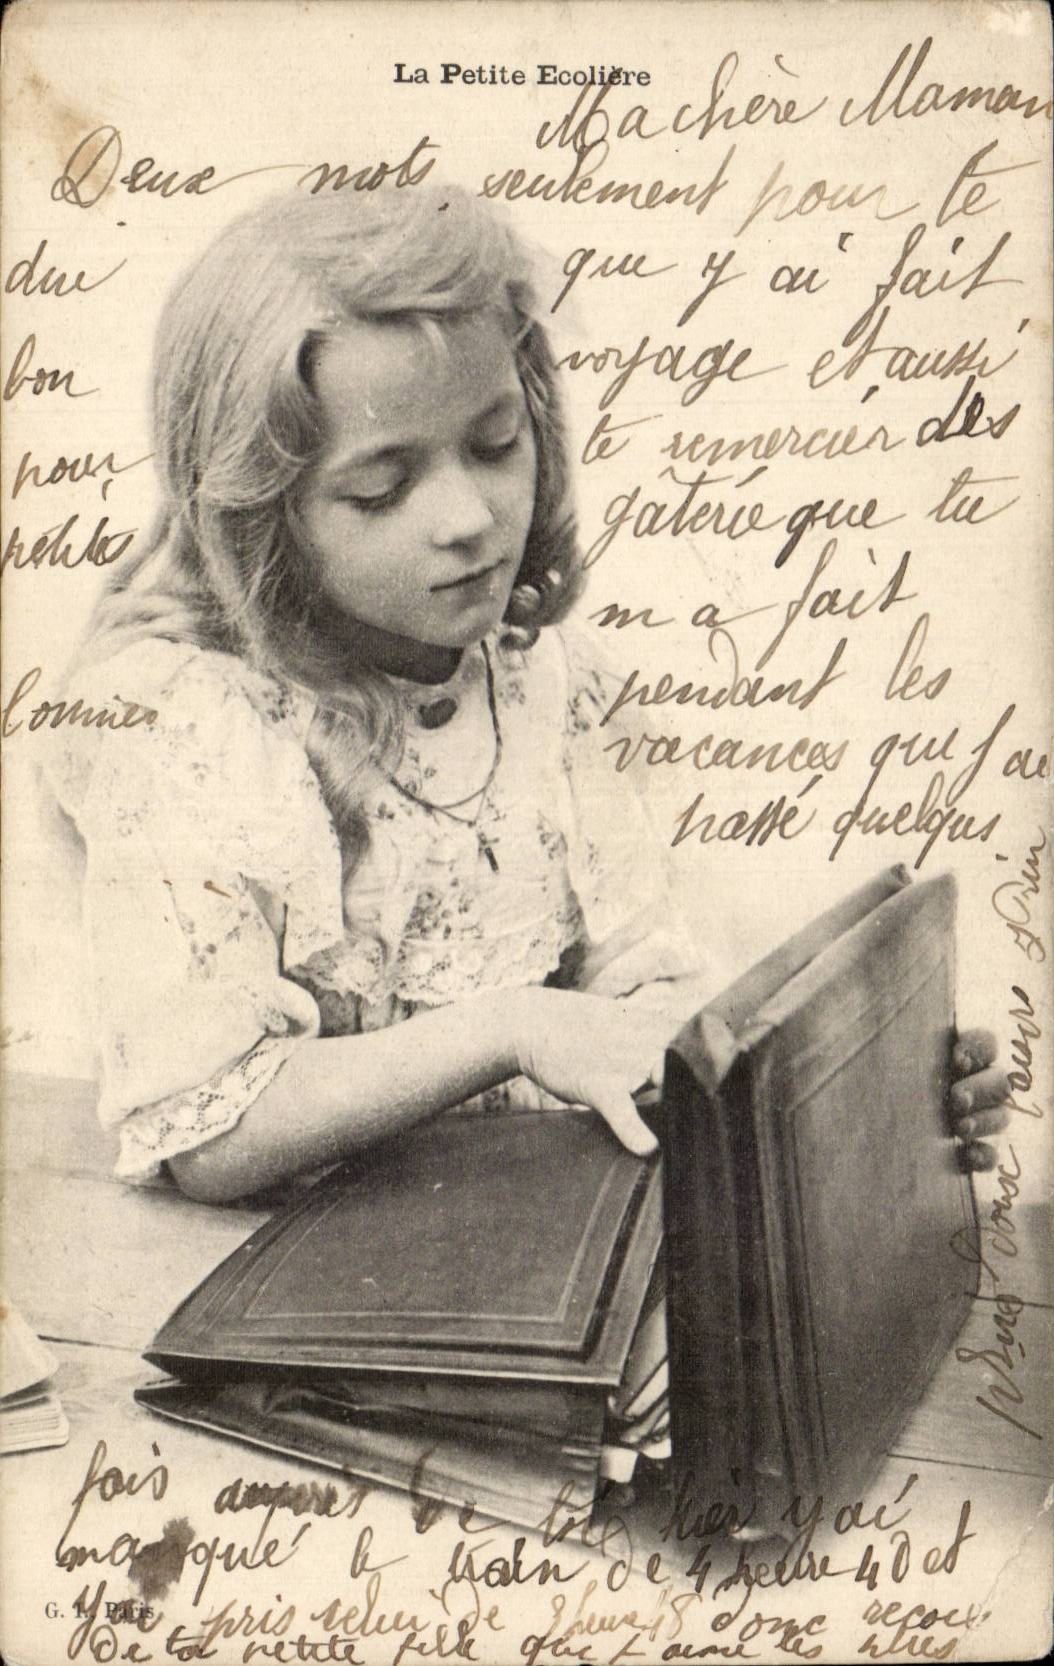 La Petite Ecolière
Ma chère Maman
Deux mots seulement pour te
dire que y ai fait
bon voyage et aussi
pour te remercier des
petites gâterie que tu
m a fait
pendant les
bonnes vacances que j ai
passé quelques
fois auprès de toi hier y ai
manqué le train de 4 heure 40 et
y ai pris celui de heure 48 donc recois
De ta petite fille que t aime les
plus doux
G. L. Paris